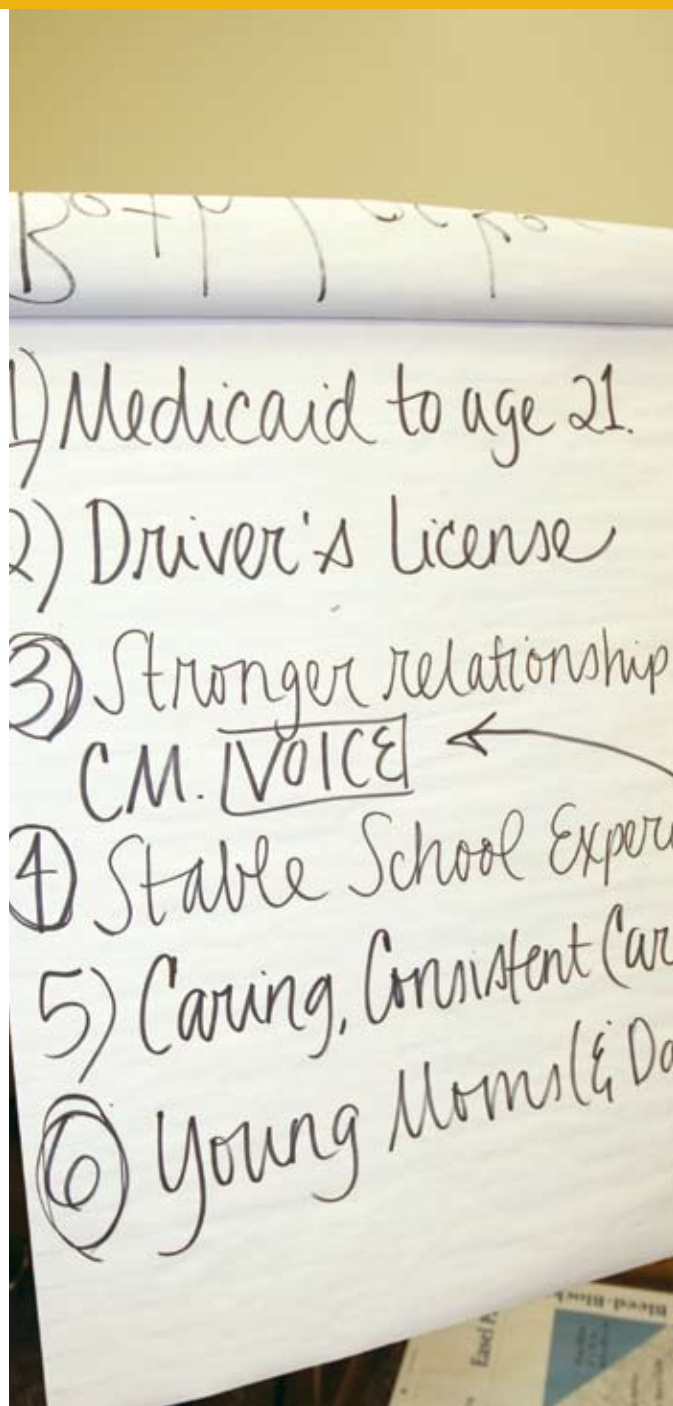 1) Medicaid to age 21.
2) Driver's License
3) Stronger relationship
CM. VOICE
4) Stable School Exper
5) Caring, Consistent Car
6) Young Moms (& Da
Bleed-Block
Easel P